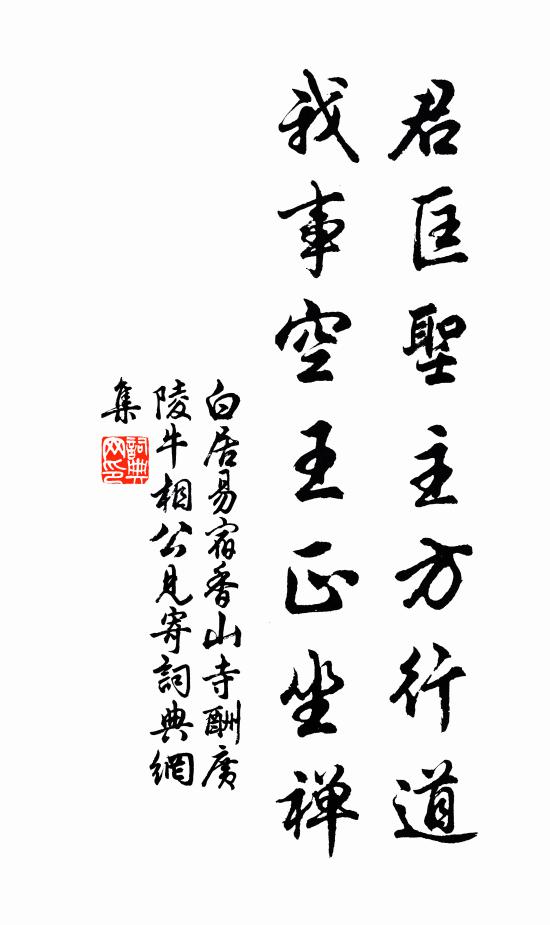 君匡聖主方行道
我事空王正坐禅
白居易宿香山寺酬廣
陵牛相公見寄詞典網
集
詞典
网印